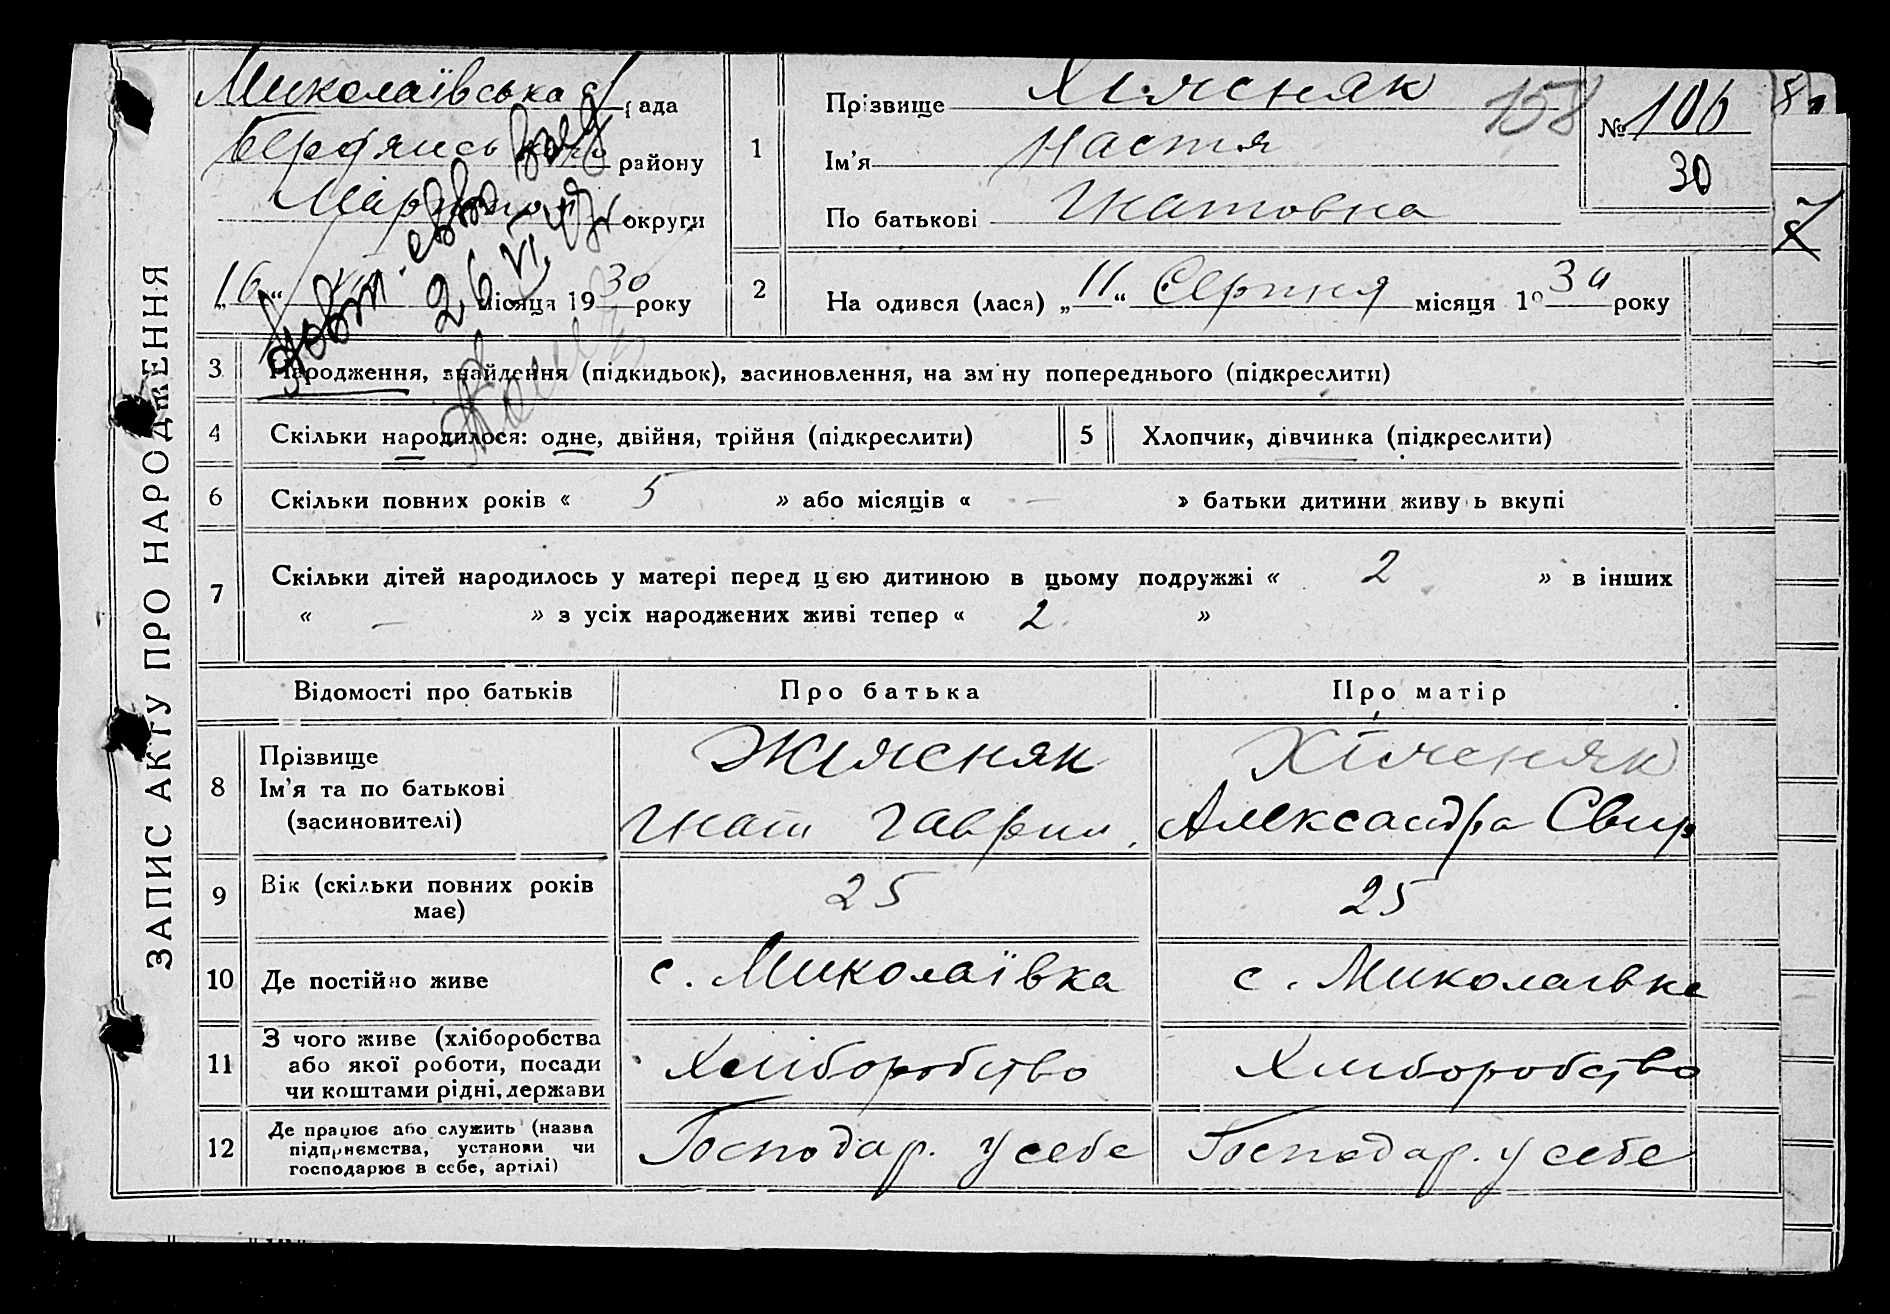 ЗАПИС АКТУ ПРО НАРОДЖЕННЯ
Миколаївська рада
Бердянського району
Маріуп. округи
„16“ VIII місяця 1930 року
26 VI
1
Прізвище Хімченяк
Ім'я Настя
По батькові Гнатовна
158
№ 106
30
2
Народився (лася) „11“ Серпня місяця 1930 року
3 Народження, знайдення (підкидьок), засиновлення, на зміну попереднього (підкреслити)
4 Скільки народилося: одне, двійня, трійня (підкреслити)
5 Хлопчик, дівчинка (підкреслити)
6 Скільки повних років « 5 » або місяців « — » батьки дитини живуть вкупі
7 Скільки дітей народилось у матері перед цією дитиною в цьому подружжі « 2 » в інших
« — » з усіх народжених живі тепер « 2 »
Відомості про батьків Про батька Про матір
8 Прізвище
Ім'я та по батькові
(засиновителі)
Гнат Гаврил.
Александра Свир
9 Вік (скільки повних років має)
25 25
10 Де постійно живе с. Миколаївка с. Миколаівка
11 З чого живе (хліборобства
або якої роботи, посади
чи коштами рідні, держави
Хліборобство Хліборобство
12 Де працює або служить (назва
підприємства, установи чи
господарює в себе, артілі)
Господар. у себе Господар. у себе